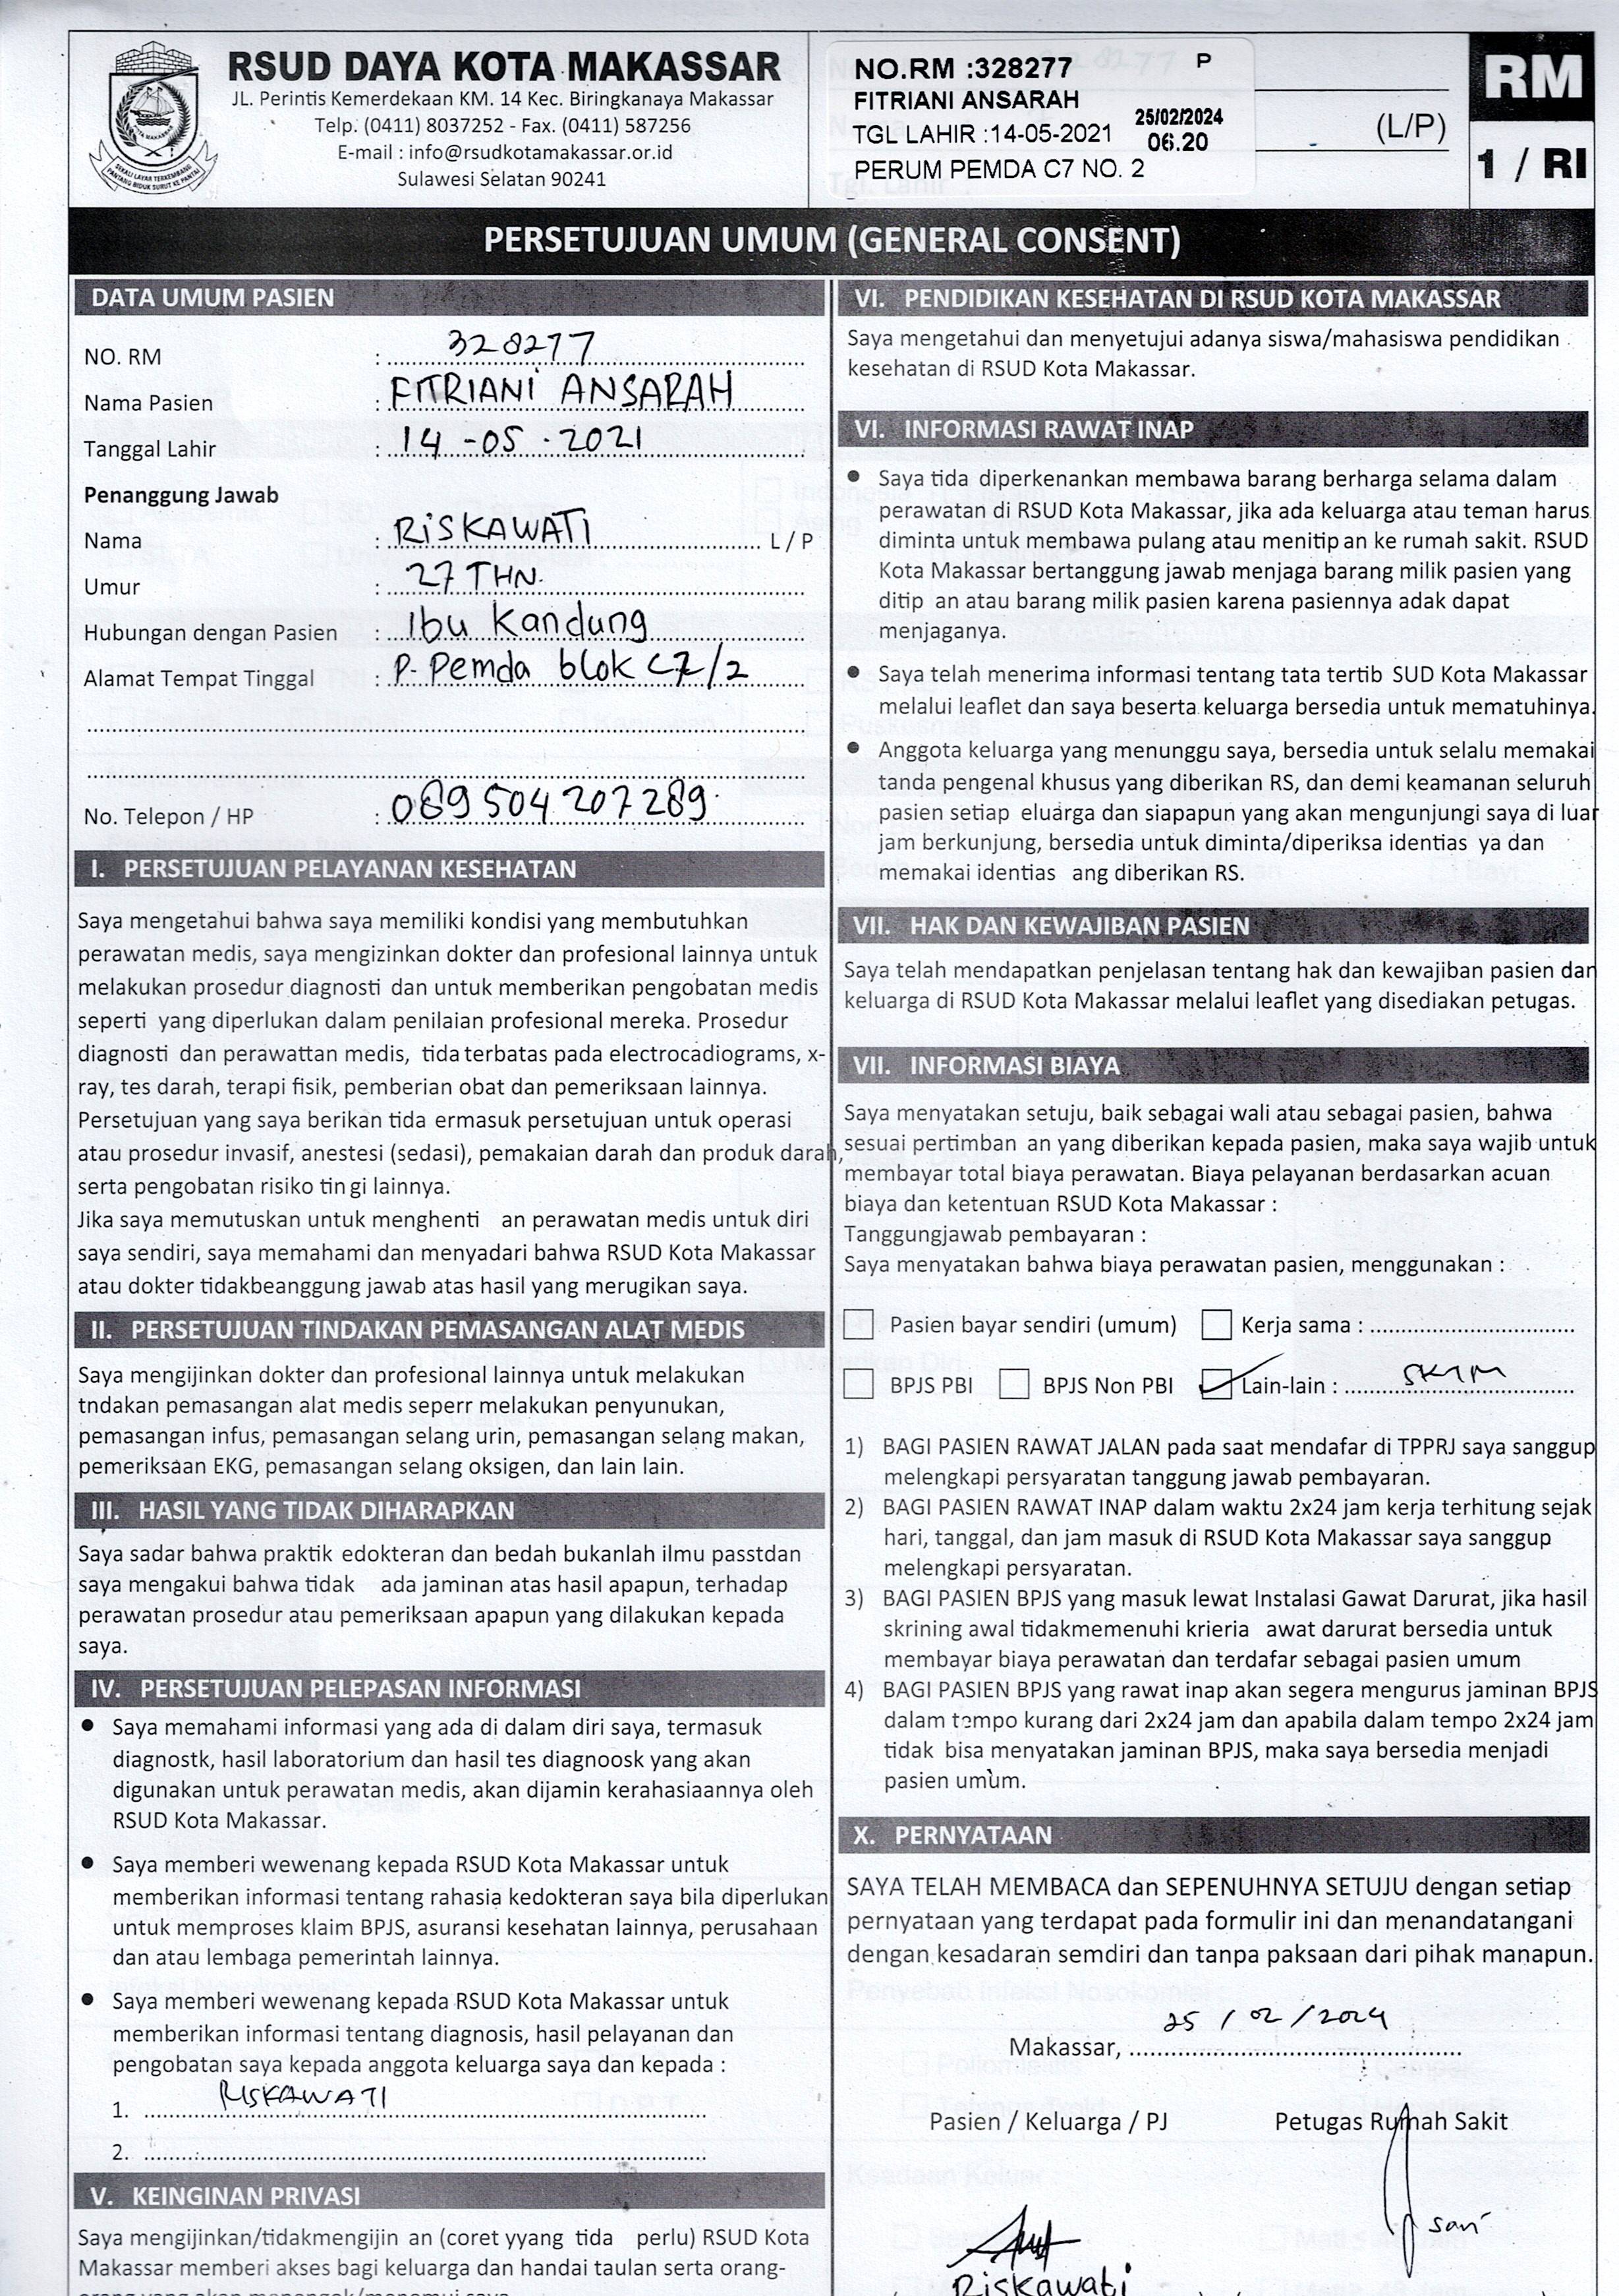 RSUD DAYA KOTA MAKASSAR
JL. Perintis Kemerdekaan KM. 14 Kec. Biringkanaya Makassar
Telp. (0411) 8037252 - Fax. (0411) 587256
E-mail : info@rsudkotamakassar.or.id
Sulawesi Selatan 90241
NO.RM :328277 P
FITRIANI ANSARAH
TGL LAHIR :14-05-2021 25/02/2024 06.20
PERUM PEMDA C7 NO. 2
(L/P)
RM
1 / RI
PERSETUJUAN UMUM (GENERAL CONSENT)
DATA UMUM PASIEN
NO. RM : 328277
Nama Pasien : FITRIANI ANSARAH
Tanggal Lahir : 14 -05 - 2021
Penanggung Jawab
Nama : RISKAWATI L / P
Umur : 27 THN.
Hubungan dengan Pasien : Ibu Kandung
Alamat Tempat Tinggal : P. Pemda blok C7/2
No. Telepon / HP : 089504207289
I. PERSETUJUAN PELAYANAN KESEHATAN
Saya mengetahui bahwa saya memiliki kondisi yang membutuhkan
perawatan medis, saya mengizinkan dokter dan profesional lainnya untuk
melakukan prosedur diagnosti dan untuk memberikan pengobatan medis
seperti yang diperlukan dalam penilaian profesional mereka. Prosedur
diagnosti dan perawattan medis, tida terbatas pada electrocadiograms, x-
ray, tes darah, terapi fisik, pemberian obat dan pemeriksaan lainnya.
Persetujuan yang saya berikan tida ermasuk persetujuan untuk operasi
atau prosedur invasif, anestesi (sedasi), pemakaian darah dan produk darah,
serta pengobatan risiko tin gi lainnya.
Jika saya memutuskan untuk menghenti an perawatan medis untuk diri
saya sendiri, saya memahami dan menyadari bahwa RSUD Kota Makassar
atau dokter tidakbeanggung jawab atas hasil yang merugikan saya.
II. PERSETUJUAN TINDAKAN PEMASANGAN ALAT MEDIS
Saya mengijinkan dokter dan profesional lainnya untuk melakukan
tndakan pemasangan alat medis seperr melakukan penyunukan,
pemasangan infus, pemasangan selang urin, pemasangan selang makan,
pemeriksaan EKG, pemasangan selang oksigen, dan lain lain.
III. HASIL YANG TIDAK DIHARAPKAN
Saya sadar bahwa praktik edokteran dan bedah bukanlah ilmu passtdan
saya mengakui bahwa tidak ada jaminan atas hasil apapun, terhadap
perawatan prosedur atau pemeriksaan apapun yang dilakukan kepada
saya.
IV. PERSETUJUAN PELEPASAN INFORMASI
● Saya memahami informasi yang ada di dalam diri saya, termasuk
diagnostk, hasil laboratorium dan hasil tes diagnoosk yang akan
digunakan untuk perawatan medis, akan dijamin kerahasiaannya oleh
RSUD Kota Makassar.
● Saya memberi wewenang kepada RSUD Kota Makassar untuk
memberikan informasi tentang rahasia kedokteran saya bila diperlukan
untuk memproses klaim BPJS, asuransi kesehatan lainnya, perusahaan
dan atau lembaga pemerintah lainnya.
● Saya memberi wewenang kepada RSUD Kota Makassar untuk
memberikan informasi tentang diagnosis, hasil pelayanan dan
pengobatan saya kepada anggota keluarga saya dan kepada :
1. RISKAWATI
2.
V. KEINGINAN PRIVASI
Saya mengijinkan/tidakmengijin an (coret yyang tida perlu) RSUD Kota
Makassar memberi akses bagi keluarga dan handai taulan serta orang-
VI. PENDIDIKAN KESEHATAN DI RSUD KOTA MAKASSAR
Saya mengetahui dan menyetujui adanya siswa/mahasiswa pendidikan
kesehatan di RSUD Kota Makassar.
VI. INFORMASI RAWAT INAP
● Saya tida diperkenankan membawa barang berharga selama dalam
perawatan di RSUD Kota Makassar, jika ada keluarga atau teman harus
diminta untuk membawa pulang atau menitip an ke rumah sakit. RSUD
Kota Makassar bertanggung jawab menjaga barang milik pasien yang
ditip an atau barang milik pasien karena pasiennya adak dapat
menjaganya.
● Saya telah menerima informasi tentang tata tertib SUD Kota Makassar
melalui leaflet dan saya beserta keluarga bersedia untuk mematuhinya.
● Anggota keluarga yang menunggu saya, bersedia untuk selalu memakai
tanda pengenal khusus yang diberikan RS, dan demi keamanan seluruh
pasien setiap eluarga dan siapapun yang akan mengunjungi saya di luar
jam berkunjung, bersedia untuk diminta/diperiksa identias ya dan
memakai identias ang diberikan RS.
VII. HAK DAN KEWAJIBAN PASIEN
Saya telah mendapatkan penjelasan tentang hak dan kewajiban pasien dan
keluarga di RSUD Kota Makassar melalui leaflet yang disediakan petugas.
VII. INFORMASI BIAYA
Saya menyatakan setuju, baik sebagai wali atau sebagai pasien, bahwa
sesuai pertimban an yang diberikan kepada pasien, maka saya wajib untuk
membayar total biaya perawatan. Biaya pelayanan berdasarkan acuan
biaya dan ketentuan RSUD Kota Makassar :
Tanggungjawab pembayaran :
Saya menyatakan bahwa biaya perawatan pasien, menggunakan :
Pasien bayar sendiri (umum) Kerja sama :
BPJS PBI BPJS Non PBI Lain-lain :
1) BAGI PASIEN RAWAT JALAN pada saat mendafar di TPPRJ saya sanggup
melengkapi persyaratan tanggung jawab pembayaran.
2) BAGI PASIEN RAWAT INAP dalam waktu 2x24 jam kerja terhitung sejak
hari, tanggal, dan jam masuk di RSUD Kota Makassar saya sanggup
melengkapi persyaratan.
3) BAGI PASIEN BPJS yang masuk lewat Instalasi Gawat Darurat, jika hasil
skrining awal tidakmemenuhi krieria awat darurat bersedia untuk
membayar biaya perawatan dan terdafar sebagai pasien umum
4) BAGI PASIEN BPJS yang rawat inap akan segera mengurus jaminan BPJS
dalam tempo kurang dari 2x24 jam dan apabila dalam tempo 2x24 jam
tidak bisa menyatakan jaminan BPJS, maka saya bersedia menjadi
pasien umum.
X. PERNYATAAN
SAYA TELAH MEMBACA dan SEPENUHNYA SETUJU dengan setiap
pernyataan yang terdapat pada formulir ini dan menandatangani
dengan kesadaran semdiri dan tanpa paksaan dari pihak manapun.
Makassar, 25 / 02 / 2024
Pasien / Keluarga / PJ Petugas Rumah Sakit
sari
Riskawati